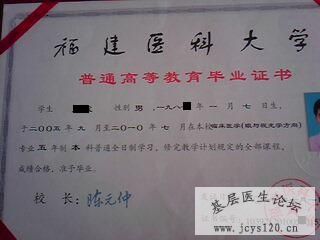 福建医科大学
普通高等教育毕业证书
学生 性别 男，一九八 年 一 月 七 日生，
于二〇〇五 年 九 月至二〇一〇 年 七 月在本校临床医学(眼与视光学方向)
专业 五 年制 本 科普通全日制学习，修完教学计划规定的全部课程，
成绩合格，准予毕业。
校 长：陈元仲
基层医生论坛
www.jcys120.cn